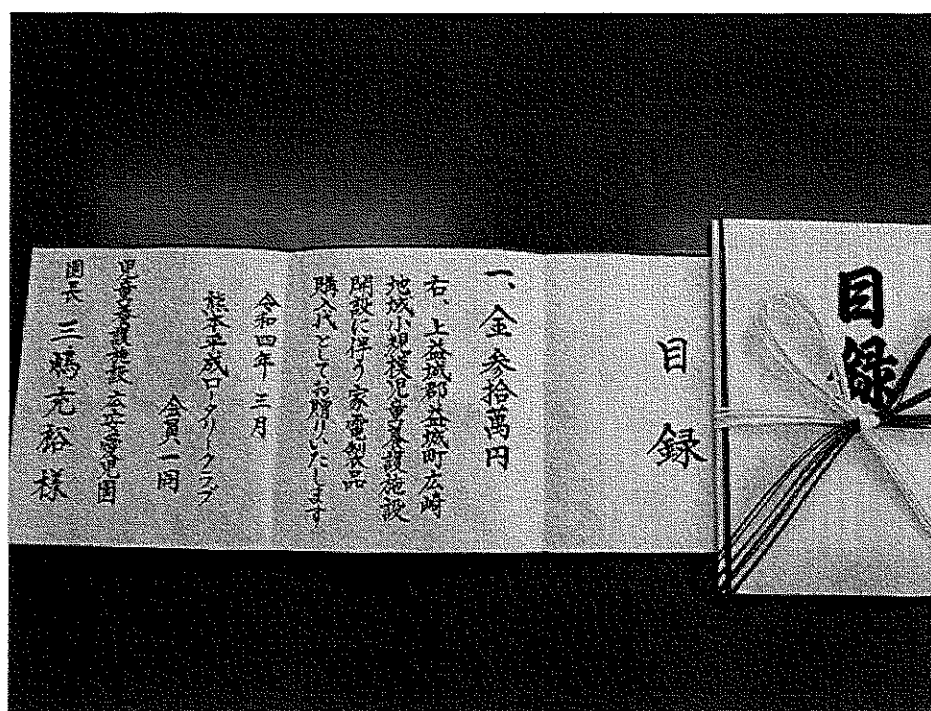 目録
目録
一、金参拾萬円
右、上益城郡益城町広崎
地域小規模児童養護施設
開設に伴う家電製品
購入代としてお贈りいたします
令和四年三月
熊本平成ロータリークラブ
会員一同
児童養護施設
園長 三嶋充裕様